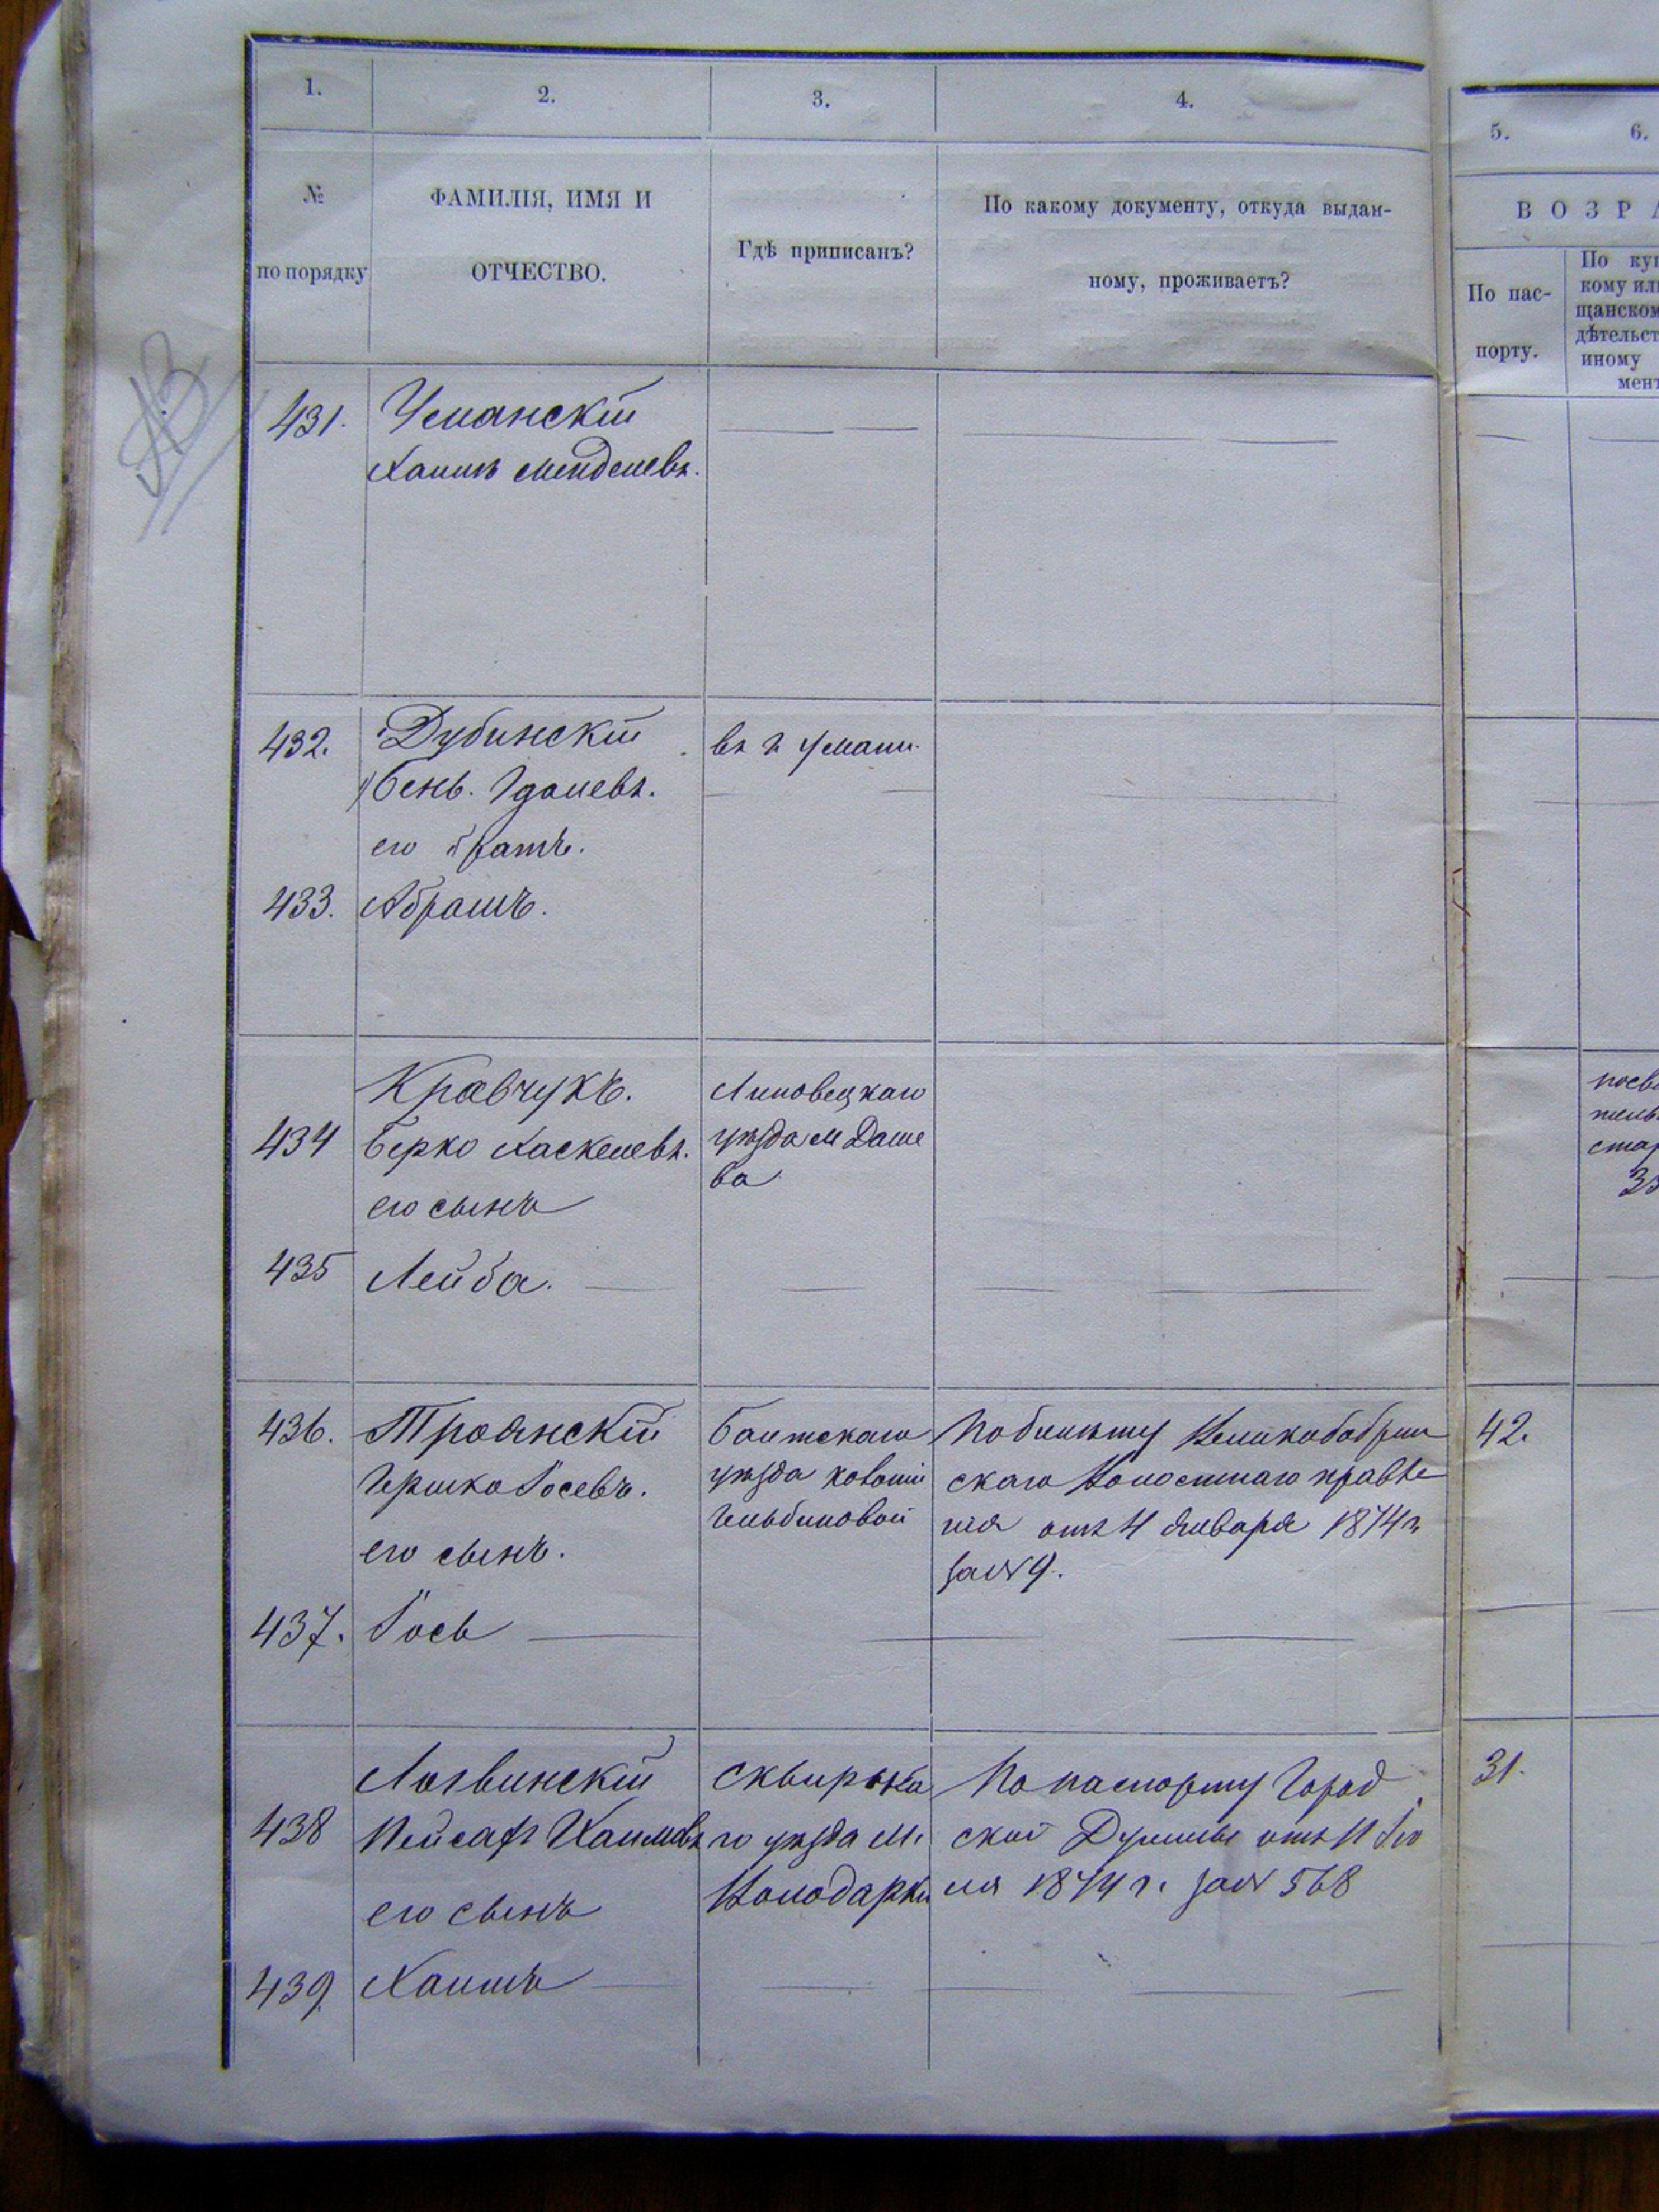 1.
2.
3.
4.
5.
6.
№
по порядку
ФАМИЛІЯ, ИМЯ И
ОТЧЕСТВО.
Гдѣ приписанъ?
По какому документу, откуда выдан-
ному, проживаетъ?
ВОЗРА
По пас-
порту.
По куп
кому или
щанском
дѣтельст
иному
мент
431.
Уманскій
Хаимъ Менделевъ.
432.
Дубинскій
Бень. Гдалевъ.
его братъ.
въ г Умани
433.
Абрамъ.
434
Кравчукъ.
Берко Хаскелевъ.
его сынъ
Липовецкаго
уѣзда м Даше
ва
435
Лейба.
436.
Троянскій
Гершко Іосевъ.
его сынъ.
Балтскаго
уѣзда
По билету Великобобрин
скаго Волостнаго правле
нія отъ 4 января 1874 г
за № 9.
42.
437.
Іось
438
Логвинскій
Пейсах Хаимовъ
его сынъ
Сквирска
го уѣзда м.
Володарки
По паспорту Город
ской Думы отъ 11 Ію
ля 1874 г. за № 568
31.
439.
Хаимъ